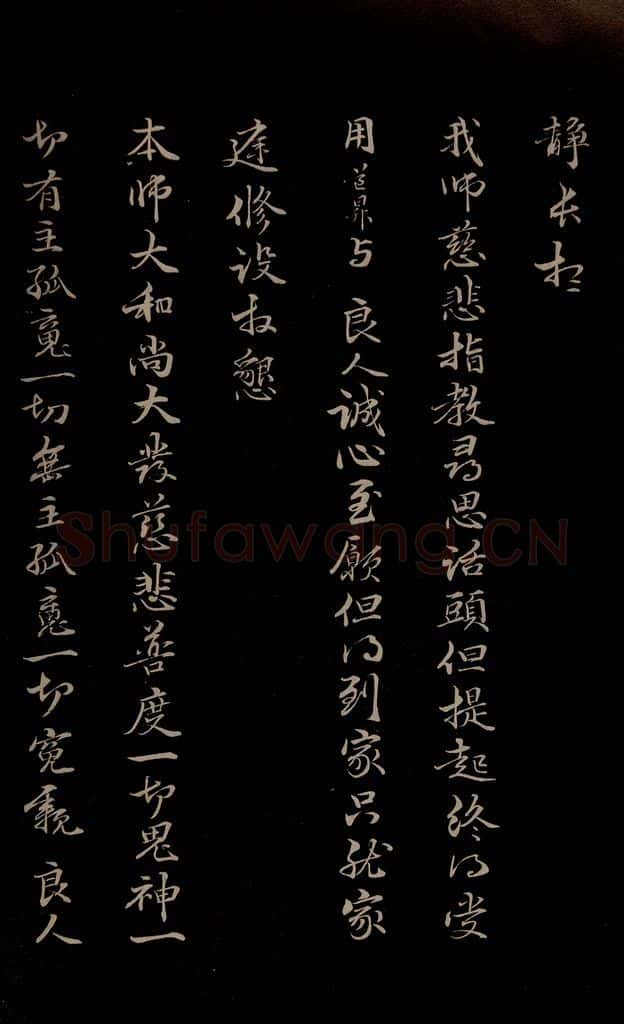 静长相
我师慈悲指教寻思话頭但提起終得受
用道昇与良人誠心至願但得到家只就家
庭修设拜懇
本师大和尚大發慈悲普度一切鬼神一
切有主孤魂一切無主孤魂一切冤親良人
Shufawang.CN